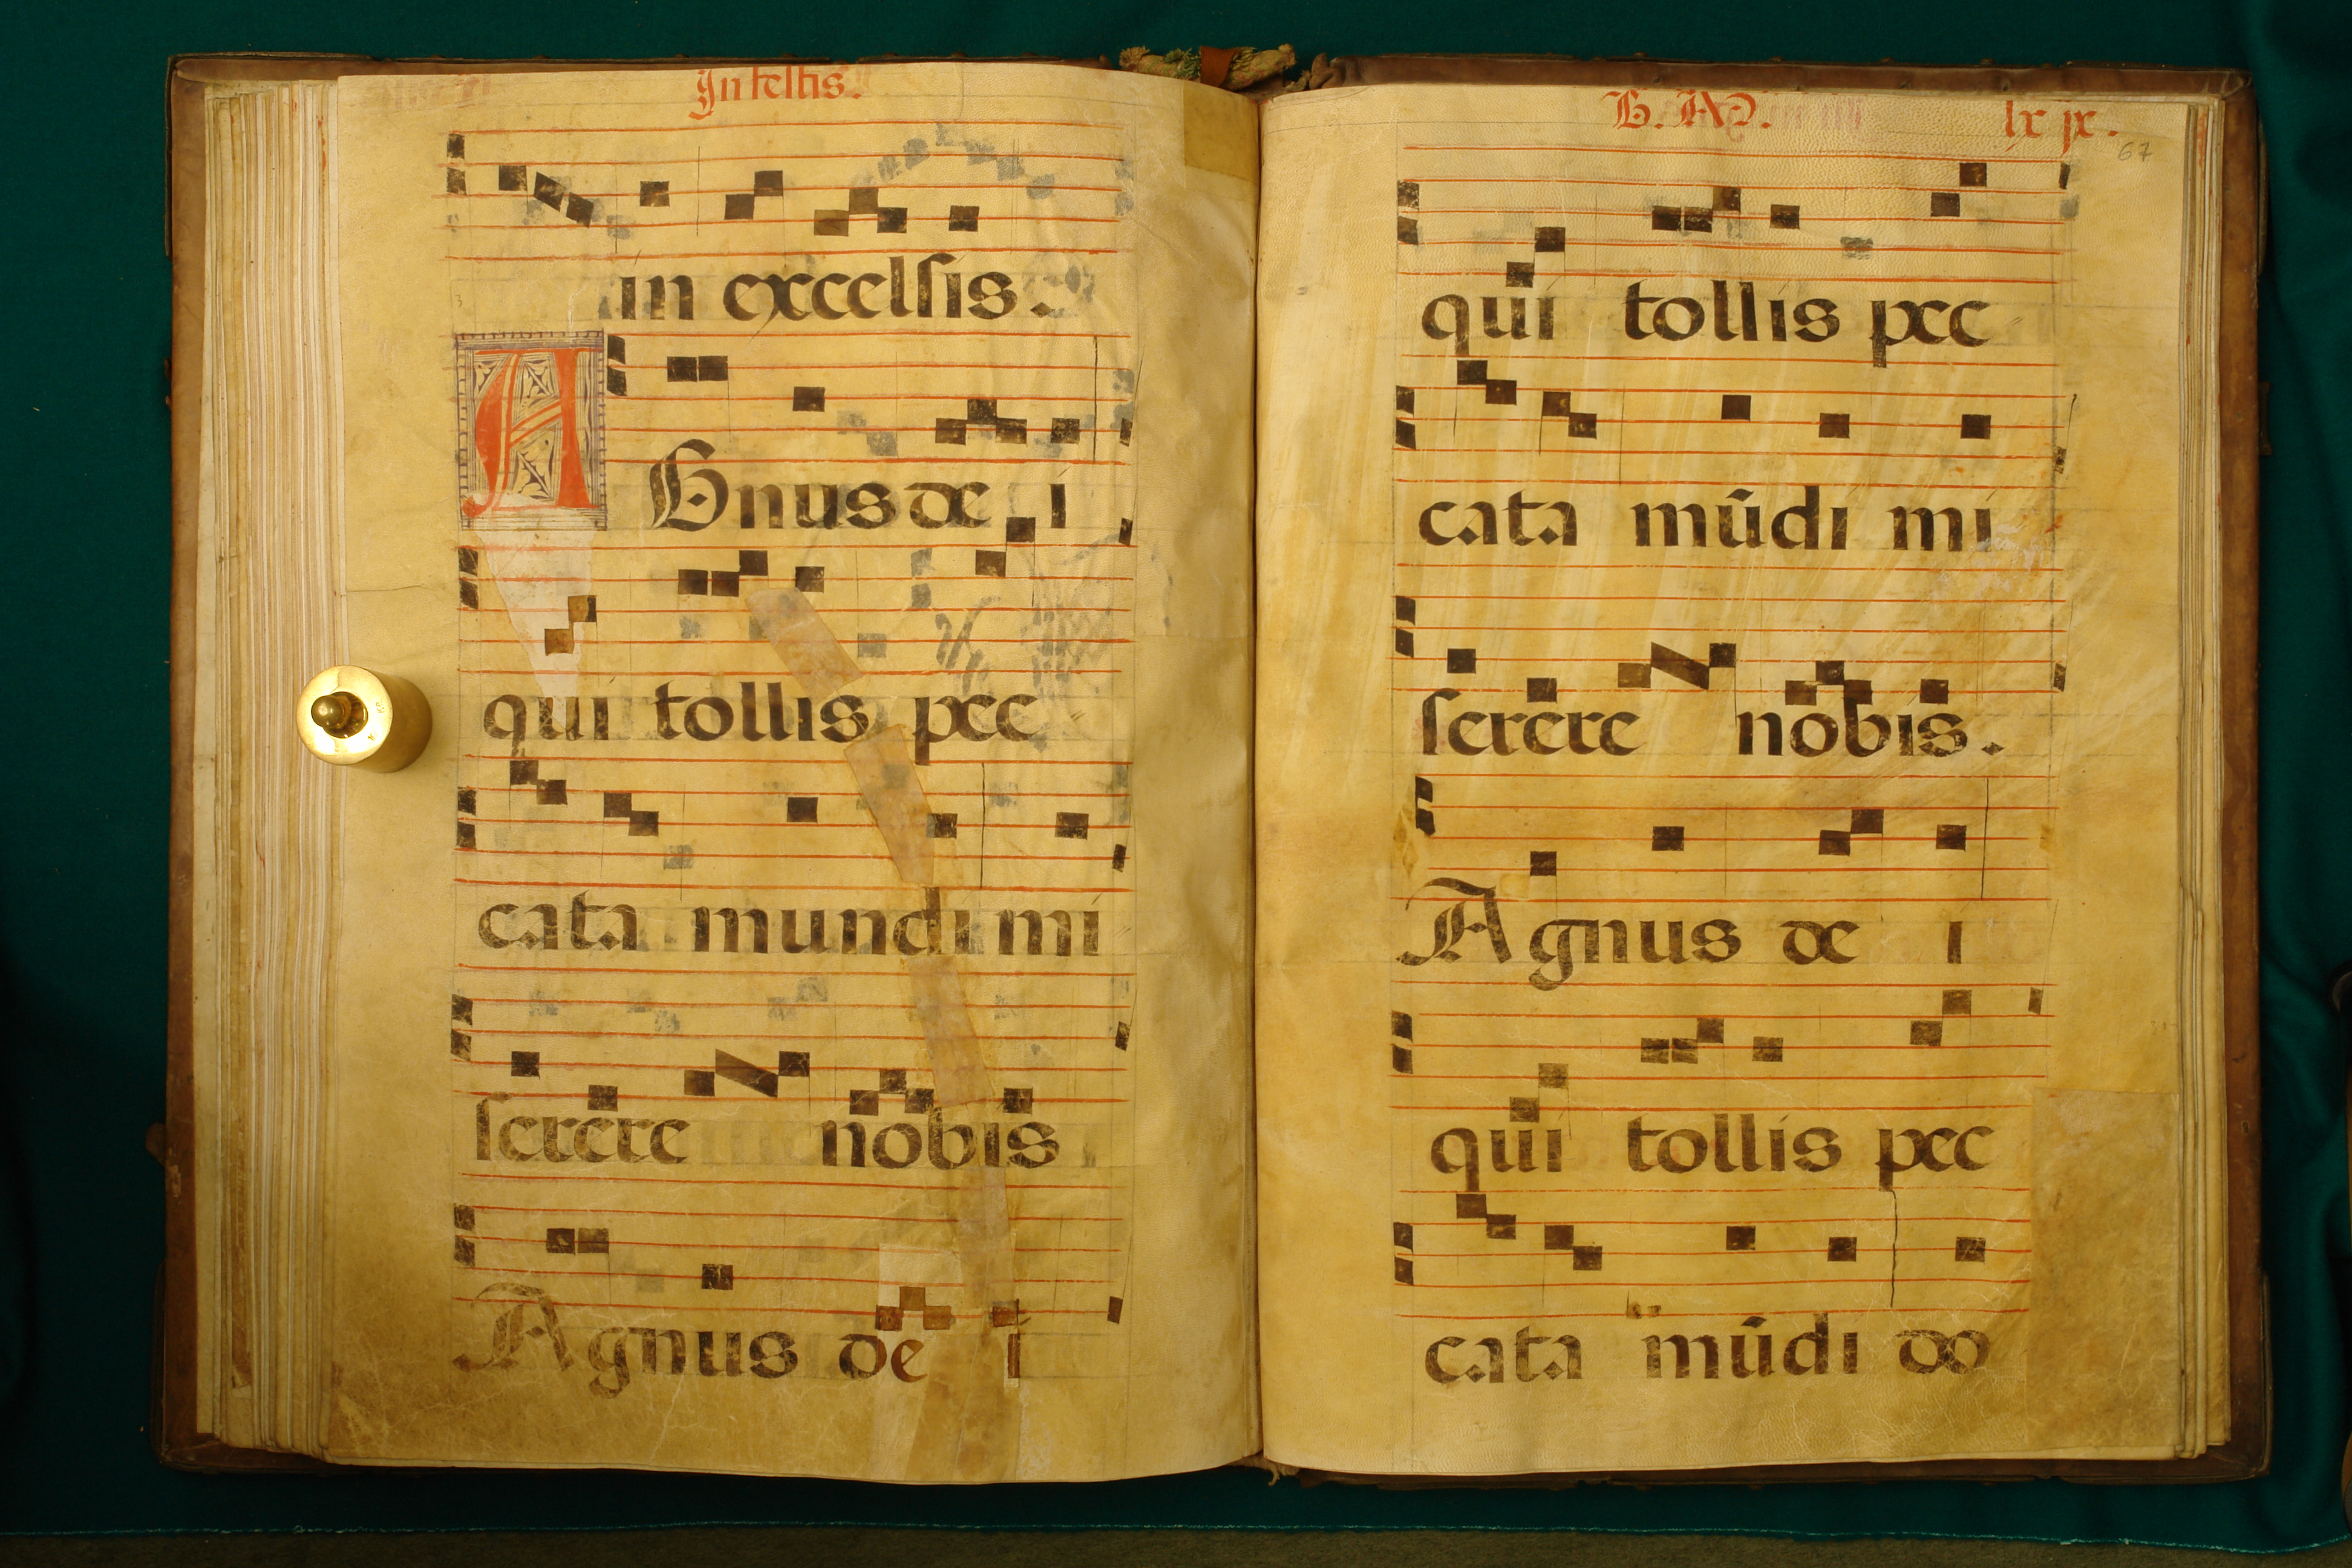 In festis.
in excelsis.
A Gnus de i
qui tollis pec
cata mundi mi
serere nobis
Agnus de i
B. M. lxix.
67
qui tollis pec
cata mūdi mi
serere nobis.
Agnus de i
qui tollis pec
cata mūdi do